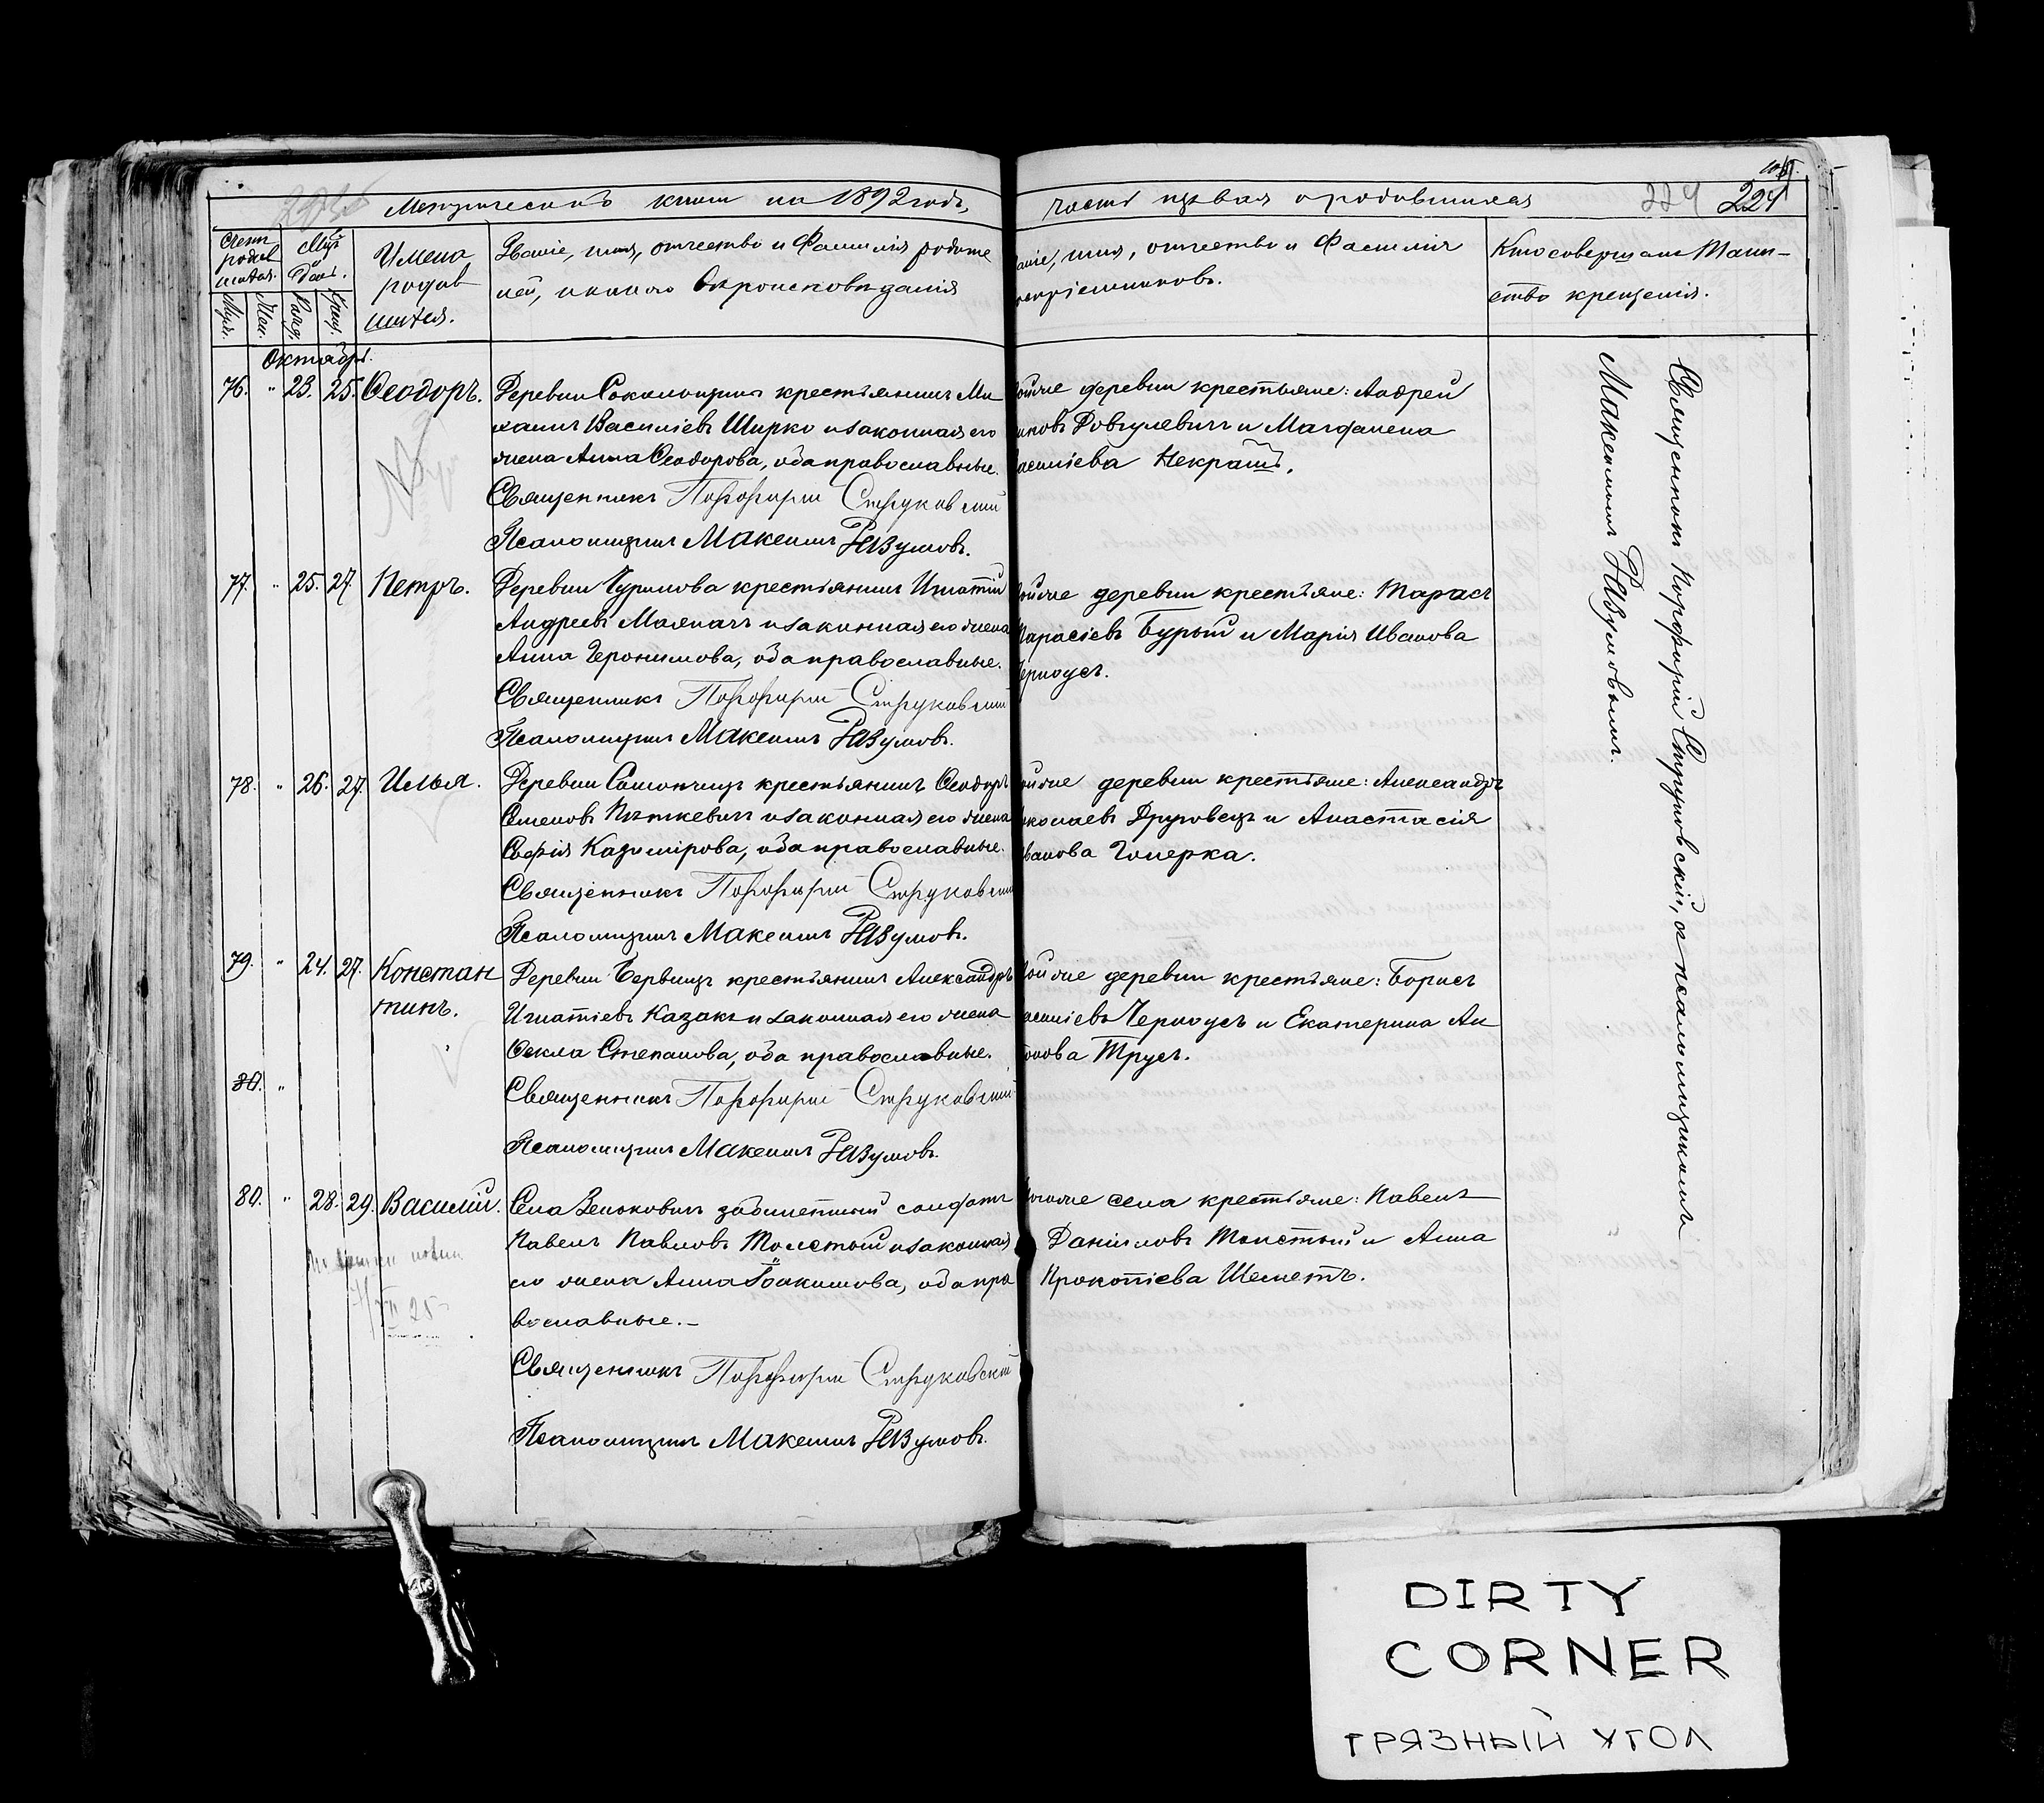 Метрической книги на 1892 годъ,
часть первая о родившихся
224
Счетъ родив шихся.
Муж. Жен.
Мѣс. и День.
Рожд. Крещ.
Имена
родив
шихся.
Званіе, имя, отчество и фамилія родите
лей, и какого вѣроисповѣданія
аніе, имя, отчество и фамилія
оспріемниковъ.
Кто совершалъ Таин-
ство крещенія.
Октябрь.
76. " 23. 25. Ѳеодоръ.
Деревни крестьянинъ Ми
хаилъ Василіевъ Ширко и законная его
жена Анна Ѳеодорова, оба православные.
Священникъ Порфирій Струковскій
Псаломщикъ Максимъ Разумовъ.
ойже деревни крестьяне: Андрей
ковъ Довгулевичъ и Магдалена
асиліева Некрашъ.
77. " 25. 27. Петръ.
Деревни Чурилова крестьянинъ Игнатій
Андреевъ Маляпачъ и законная его жена
Анна Іеронимова, оба православные.
Священникъ Порфирій Струковскій
Псаломщикъ Максимъ Разумовъ.
ойже деревни крестьяне: Тарасъ
арасіевъ Бурый и Марія Иванова
ерноусъ.
78. " 26. 27. Илья.
Деревни крестьянинъ Ѳеодоръ
Семеновъ Пяткевичъ и законная его жена
Софія Казимірова, оба православные.
Священникъ Порфирій Струковскій
Псаломщикъ Максимъ Разумовъ.
ойже деревни крестьяне: Александръ
колаевъ Друговецъ и Анастасія
ванова Гомерка.
79. " 24. 27. Констан
тинъ.
Деревни крестьянинъ Александръ
Игнатіевъ Казакъ и законная его жена
Ѳекла Степанова, оба православные.
80. "
Священникъ Порфирій Струковскій
Псаломщикъ Максимъ Разумовъ.
ойже деревни крестьяне: Борисъ
асиліевъ Черноусъ и Екатерина Ан
онова Трусъ.
80. " 28. 29. Василій.
Села Зеньковичъ забилетный солдатъ
Павелъ Павловъ Толстый и законная
его жена Анна Іоакимова, оба пра
вославные.-
Священникъ Порфирій Струковскій
Псаломщикъ Максимъ Разумовъ.
огоже села крестьяне: Павелъ
Даниловъ Толстый и Анна
Прокопіева Шеметъ.
Священникъ Порфирій Струковскій, съ псаломщикомъ
Максимомъ Разумовымъ.
DIRTY
CORNER
ГРЯЗНЫЙ УГОЛ